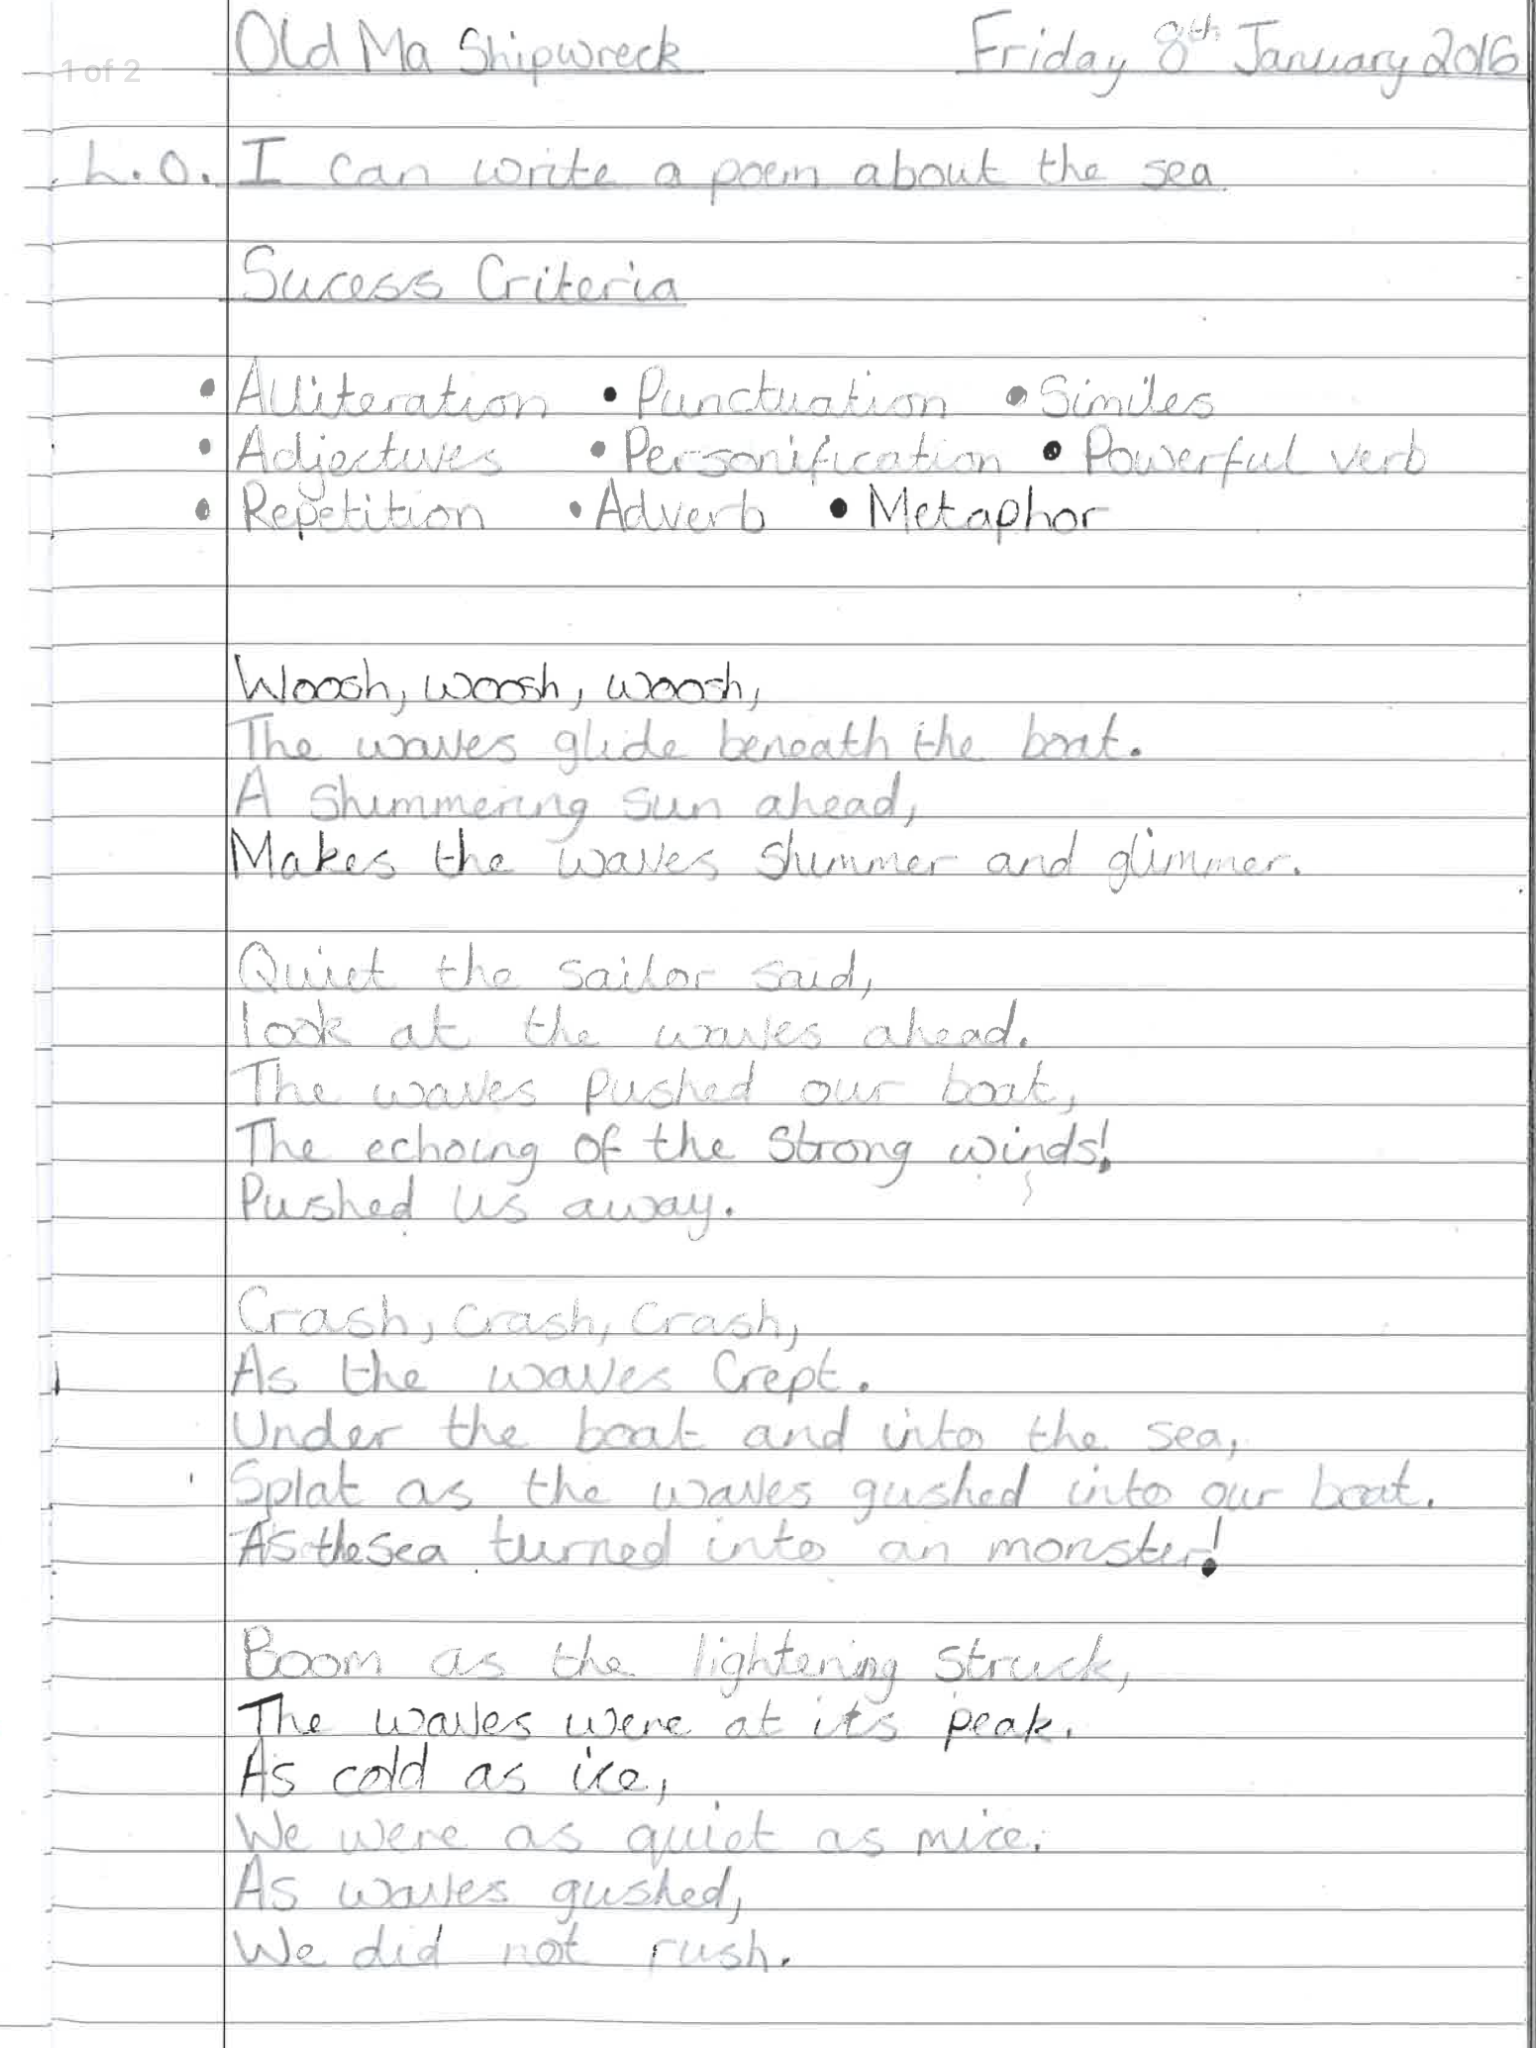 Old Ma Shipwreck Friday 8th January 2016
1 of 2
L.O. I can write a poem about the sea
Sucess Criteria
• Alliteration • Punctuation • Similes
• Adjectives • Personification • Powerful verb
• Repetition • Adverb • Metaphor
Woosh, woosh, woosh,
The waves glide beneath the boat.
A shimmering sun ahead,
Makes the waves shimmer and glimmer.
Quiet the sailor said,
look at the waves ahead.
The waves pushed our boat,
The echoing of the strong winds!
Pushed us away.
Crash, crash, crash,
As the waves crept.
Under the boat and into the sea,
Splat as the waves gushed into our boat.
As the sea turned into an monster!
Boom as the lightening struck,
The waves were at its peak.
As cold as ice,
We were as quiet as mice.
As waves gushed,
We did not rush.